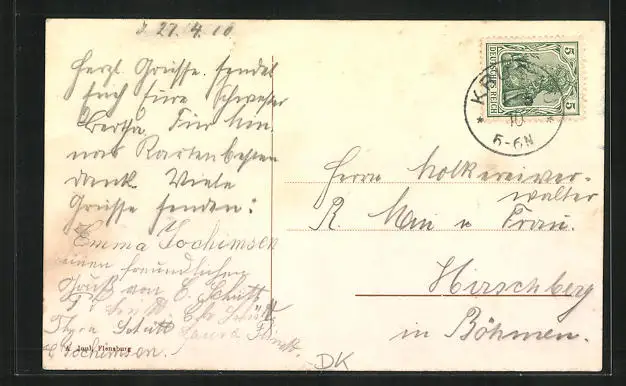 d. 27. 4. 10
Herzl. Grüsse sendet
Euch Eure Schwester
Bertha. Für
Karten besten
dank. Viele
Grüsse senden:
Emma Jochimsen
einen freundlichen
Gruß von E. Schütt
Thyra Schütt
Jochimsen.
Jonl, Flensburg
DK
DEUTSCHES REICH
5
5
KR
10
5-6N
Herrn Molkereiver-
walter
R. Mai u Frau.
Hirschberg
in Böhmen.